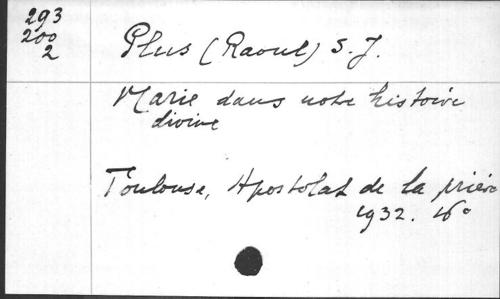 293
200
2
Plus (Raoul) S. J.
Marie dans notre histoire
divine
Toulouse, Apostolat de la prière
1932. 16°